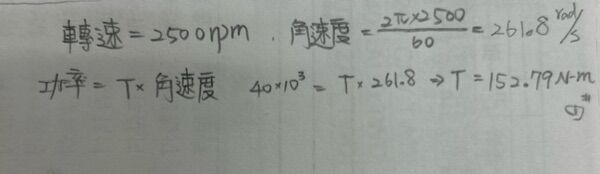 轉速 = 2500rpm . 角速度 = 2π×2500/60 = 261.8 rad/s
功率 = T × 角速度 40×10³ = T × 261.8 ⇒ T = 152.79 N-m #
(1)